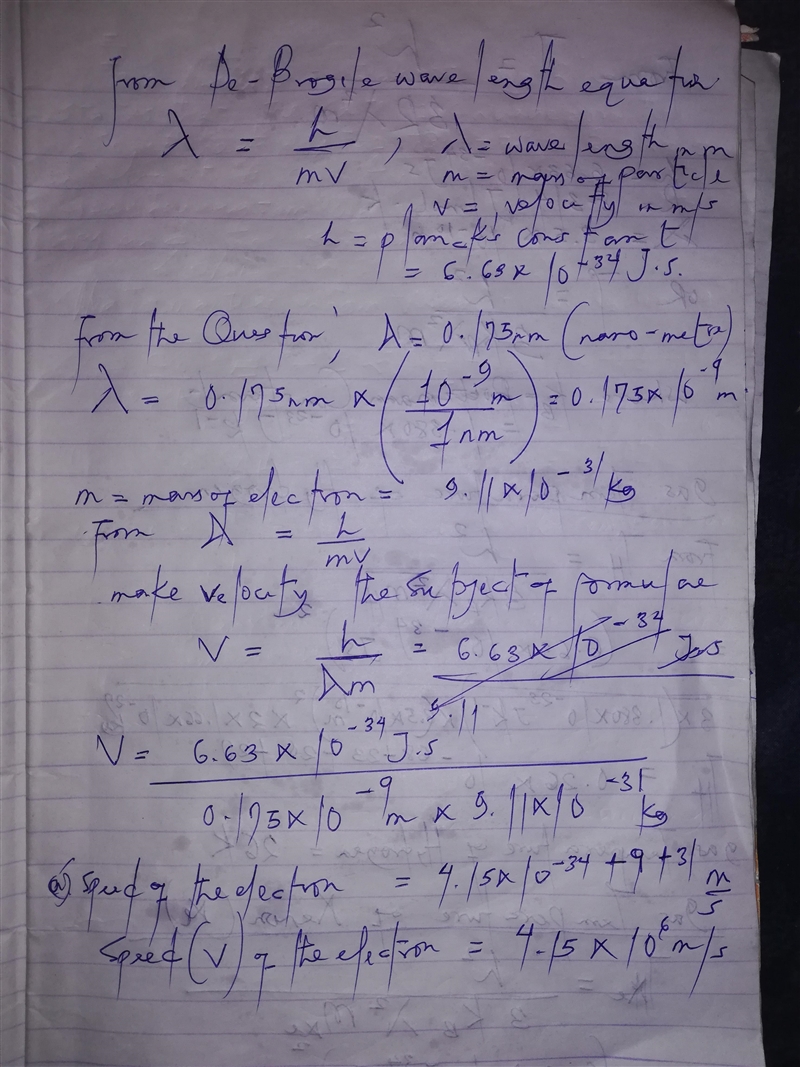 from De-Brogile wave length equation
λ = h/mv , λ = wave length in m
m = mass of particle
v = velocity in m/s
h = planck's constant
= 6.63 x 10^-34 J.s.
from the Question, λ = 0.175nm (nano-metre)
λ = 0.175nm x (10^-9 m/1nm) = 0.175 x 10^-9 m.
m = mass of electron = 9.11 x 10^-31 kg
from λ = h/mv
make velocity the subject of formulae
V = h/λm = 6.63 x 10^-34 J.s
9.11
V = 6.63 x 10^-34 J.s / 0.175 x 10^-9 m x 9.11 x 10^-31 kg
a) Speed of the electron = 4.15 x 10^-34 + 9 + 31 m/s
Speed (V) of the electron = 4.15 x 10^6 m/s